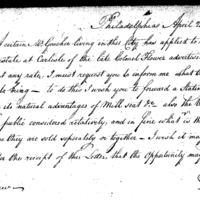 Philadelphia April 2
A certain Mr Couchen living in this City has applied to
estate at Carlisle of the late Colonel Flower advertise
at any rate, I must request you to inform me what th
bring — to do this I wish you to forward a Stat
its natural advantages of Mill seat &c also the
public considered relatively, and in fine what is th
they are sold seperately or together — I wish it may
the receipt of this Letter, that the Oppertunity may